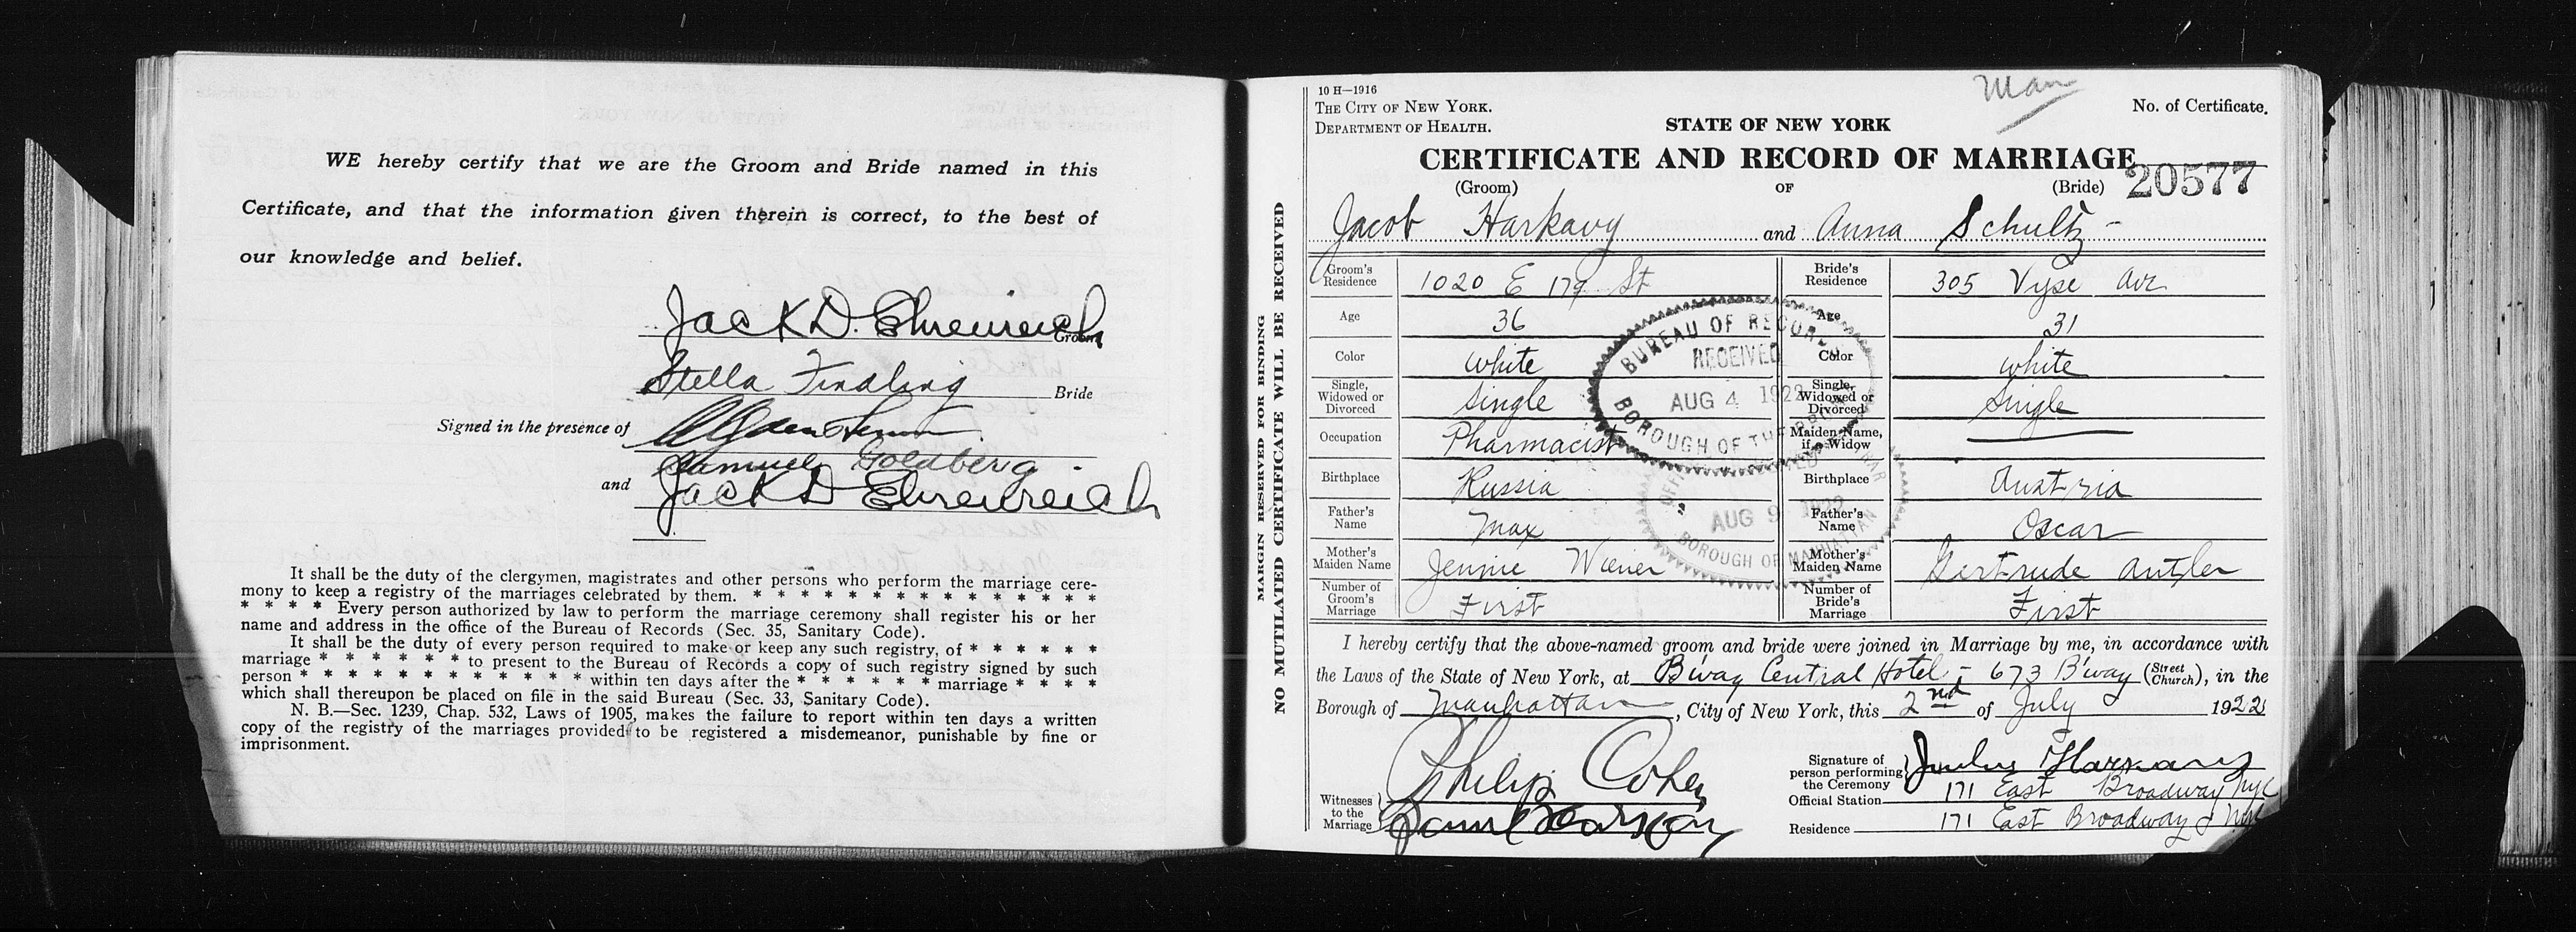 WE hereby certify that we are the Groom and Bride named in this
Certificate, and that the information given therein is correct, to the best of
our knowledge and belief.
Jack D. Ehrenreich
Groom
Stella Findling Bride
Signed in the presence of
Samuel Goldberg
and Jack D Ehrenreich
It shall be the duty of the clergymen, magistrates and other persons who perform the marriage cere-
mony to keep a registry of the marriages celebrated by them. * * * * * * * * * * * * * * *
* * * * Every person authorized by law to perform the marriage ceremony shall register his or her
name and address in the office of the Bureau of Records (Sec. 35, Sanitary Code).
It shall be the duty of every person required to make or keep any such registry, of * * * * * *
marriage * * * * * * to present to the Bureau of Records a copy of such registry signed by such
person * * * * * * * * * * * * within ten days after the * * * * * * marriage * * * *
which shall thereupon be placed on file in the said Bureau (Sec. 33, Sanitary Code).
N. B.—Sec. 1239, Chap. 532, Laws of 1905, makes the failure to report within ten days a written
copy of the registry of the marriages provided to be registered a misdemeanor, punishable by fine or
imprisonment.
MARGIN RESERVED FOR BINDING
NO MUTILATED CERTIFICATE WILL BE RECEIVED
10 H—1916
THE CITY OF NEW YORK.
DEPARTMENT OF HEALTH.
Man
No. of Certificate.
STATE OF NEW YORK
CERTIFICATE AND RECORD OF MARRIAGE
20577
(Groom) OF (Bride)
Jacob Harkavy and Anna Schultz -
Groom's Residence 1020 E 179 St Bride's Residence 305 Vyse Ave
Age 36 Age 31
Color White Color White
Single, Widowed or Divorced Single Single, Widowed or Divorced Single
Occupation Pharmacist Maiden Name, if a Widow
Birthplace Russia Birthplace Austria
Father's Name Max Father's Name Oscar
Mother's Maiden Name Jennie Wiener Mother's Maiden Name Gertrude Antler
Number of Groom's Marriage First Number of Bride's Marriage First
BUREAU OF RECORDS
RECEIVED
AUG 4 1922
BOROUGH OF THE BRONX
AUG 9 1922
BOROUGH OF MANHATTAN
I hereby certify that the above-named groom and bride were joined in Marriage by me, in accordance with
the Laws of the State of New York, at B'way Central Hotel - 673 B'way (Street Church), in the
Borough of Manhattan, City of New York, this 2nd of July 1922
Witnesses to the Marriage
Philip Cohen
Signature of person performing the Ceremony Julius Harkavy
Official Station 171 East Broadway NYC
Residence 171 East Broadway NYC